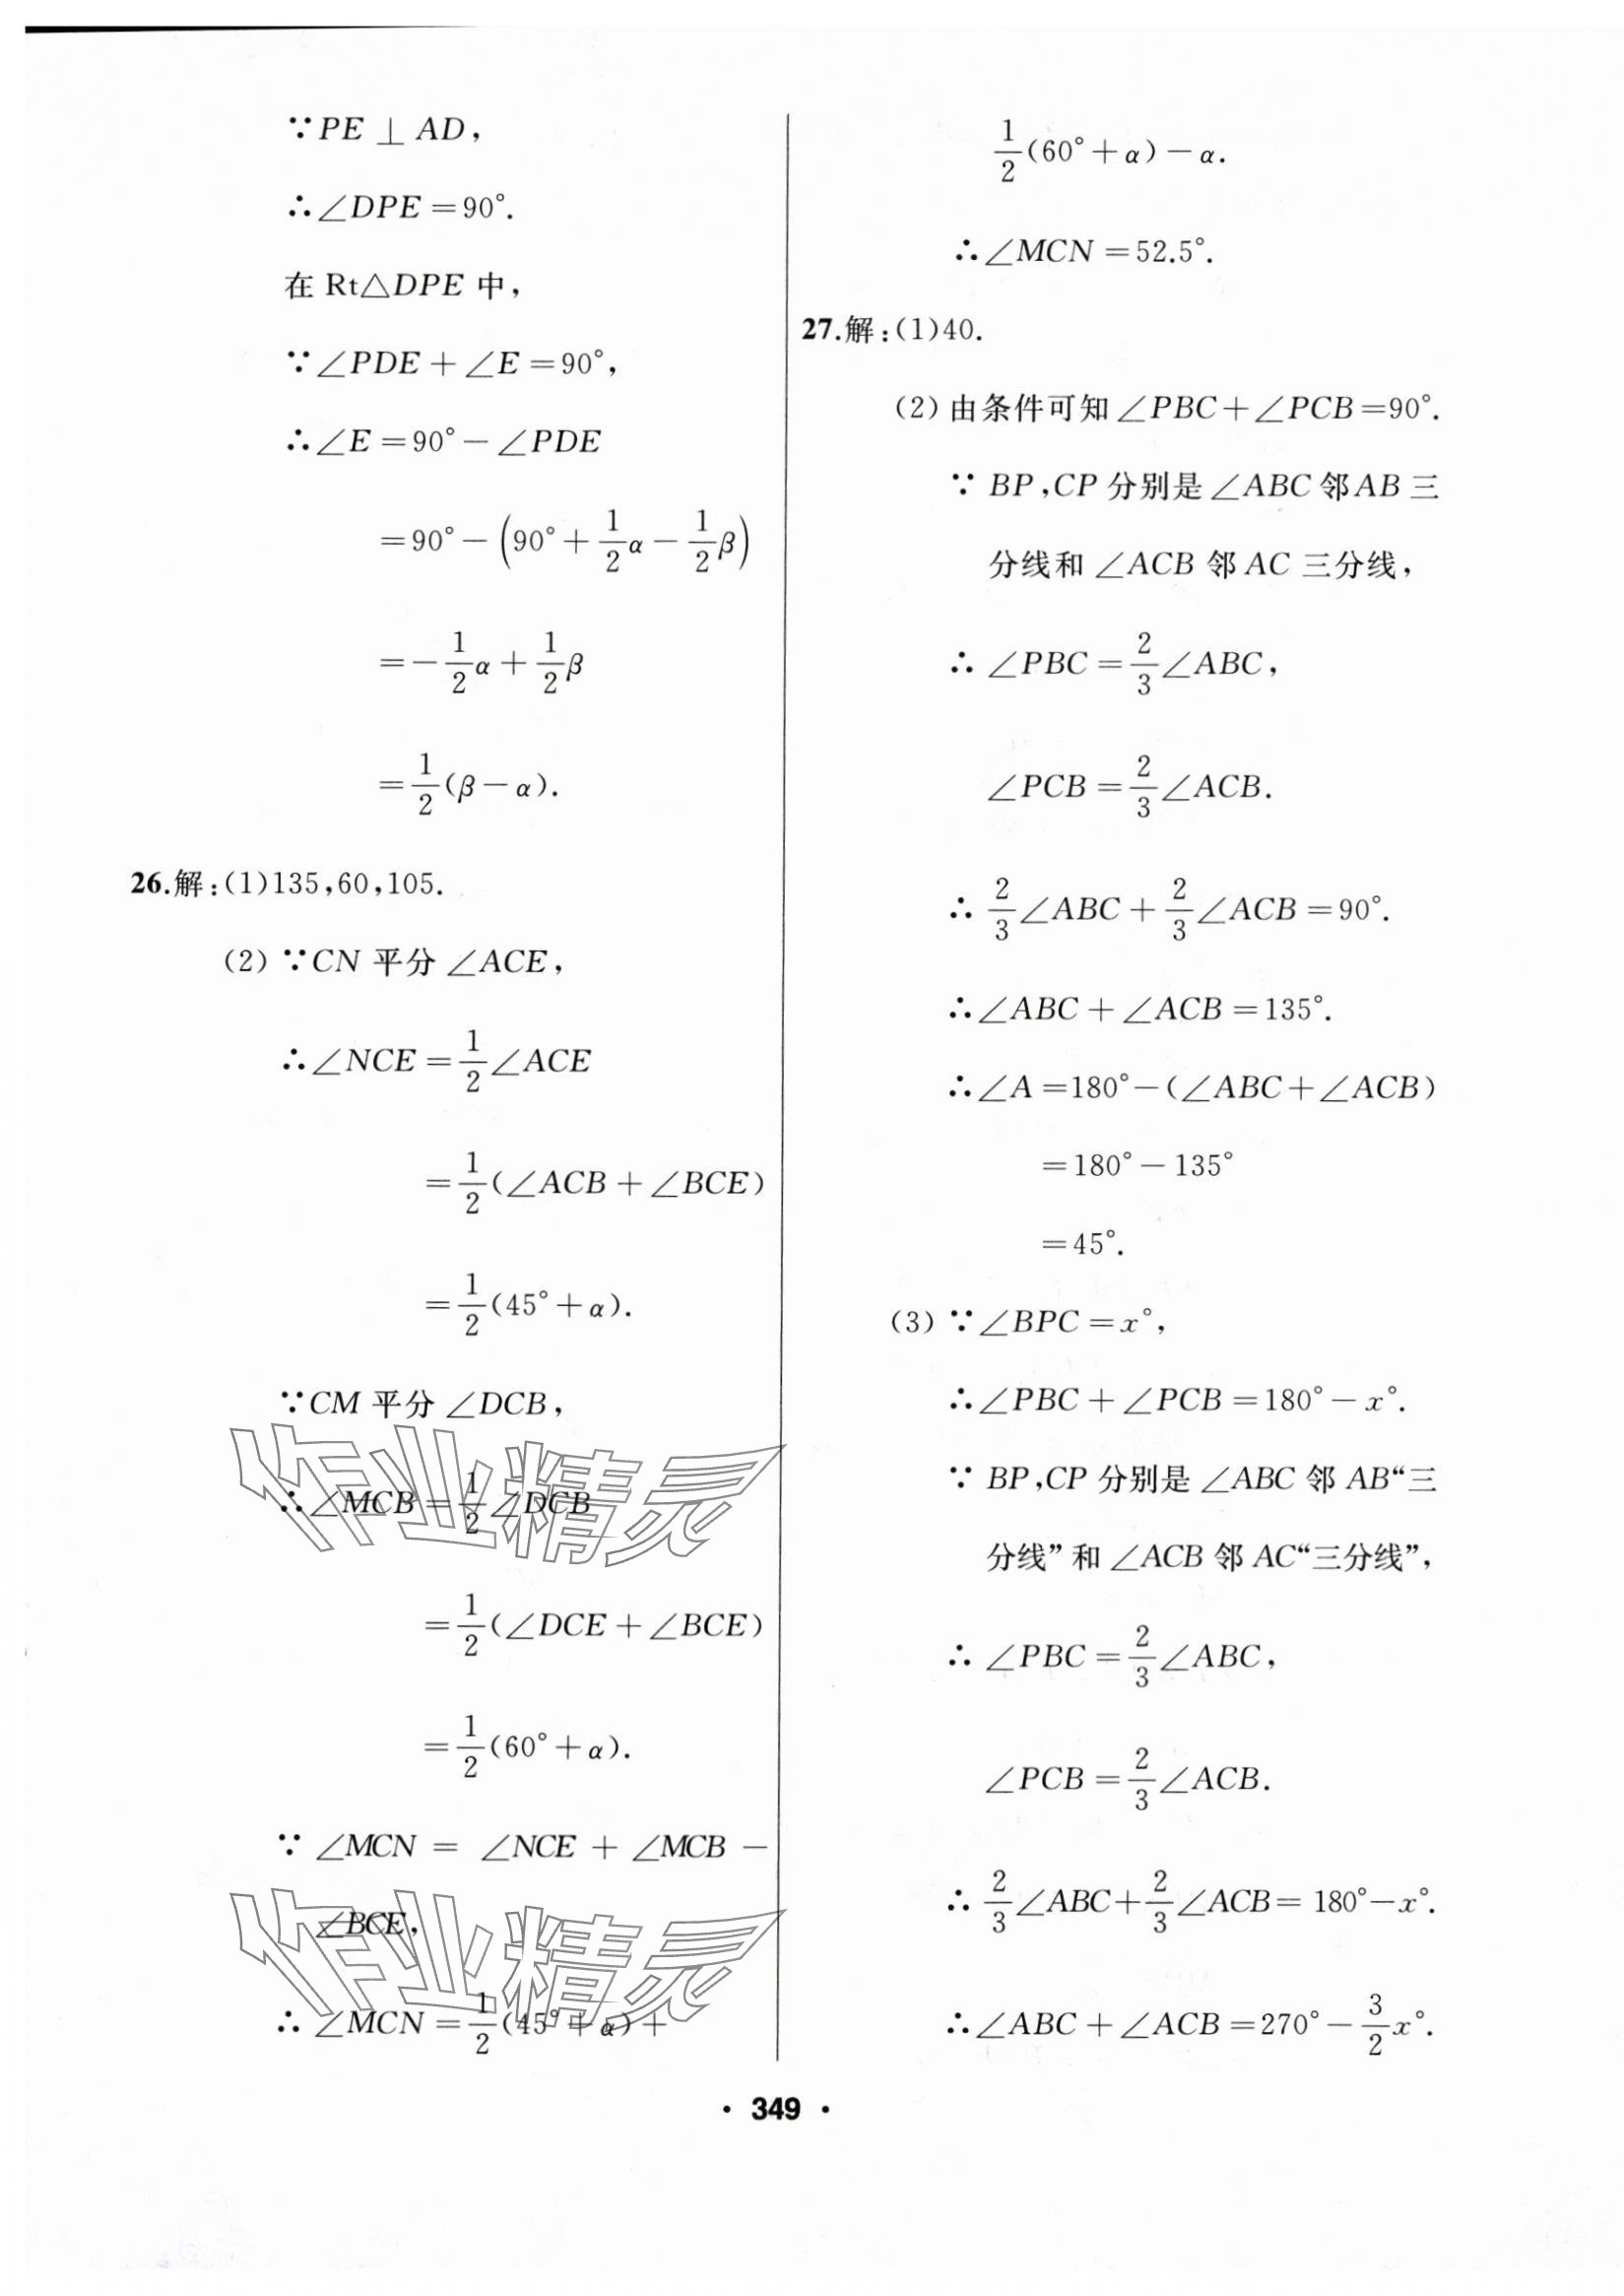 ∵PE⊥AD,
∴∠DPE=90°.
在 Rt△DPE 中,
∵∠PDE+∠E=90°,
∴∠E=90°-∠PDE
=90°-(90°+1/2α-1/2β)
=-1/2α+1/2β
=1/2(β-α).
26.解:(1)135,60,105.
(2)∵CN 平分∠ACE,
∴∠NCE=1/2∠ACE
=1/2(∠ACB+∠BCE)
=1/2(45°+α).
∵CM 平分∠DCB,
∴∠MCB=1/2∠DCB
=1/2(∠DCE+∠BCE)
=1/2(60°+α).
∵ ∠MCN = ∠NCE + ∠MCB -
∠BCE,
∴ ∠MCN=1/2(45°+α)+
1/2(60°+α)-α.
∴∠MCN=52.5°.
27.解:(1)40.
(2)由条件可知∠PBC+∠PCB=90°.
∵ BP,CP 分别是∠ABC 邻 AB 三
分线和∠ACB 邻 AC 三分线,
∴ ∠PBC=2/3∠ABC,
∠PCB=2/3∠ACB.
∴ 2/3∠ABC+2/3∠ACB=90°.
∴∠ABC+∠ACB=135°.
∴∠A=180°-(∠ABC+∠ACB)
=180°-135°
=45°.
(3)∵∠BPC=x°,
∴∠PBC+∠PCB=180°-x°.
∵ BP,CP 分别是∠ABC 邻 AB“三
分线”和∠ACB 邻 AC“三分线”,
∴ ∠PBC=2/3∠ABC,
∠PCB=2/3∠ACB.
∴ 2/3∠ABC+2/3∠ACB=180°-x°.
∴∠ABC+∠ACB=270°-3/2x°.
作业精灵
作业精灵
· 349 ·